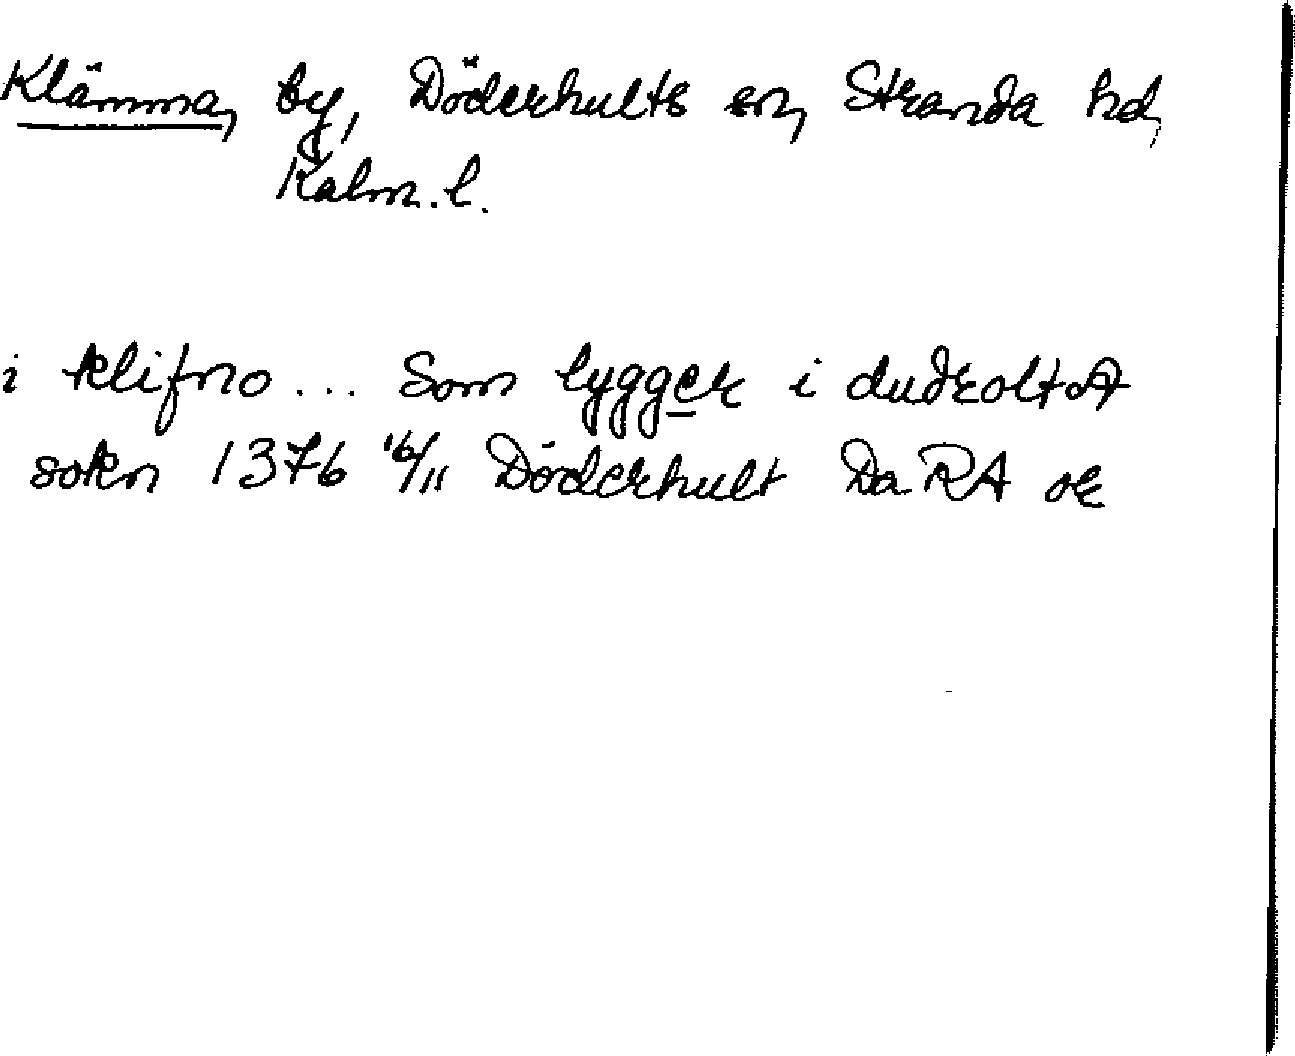 Klämma, by, Döderhults sn, Stranda hd,
Kalm. l.
i klifmo ... Som lygger i dudroltA
sokn 1376 16/11 Döderhult Da RA or